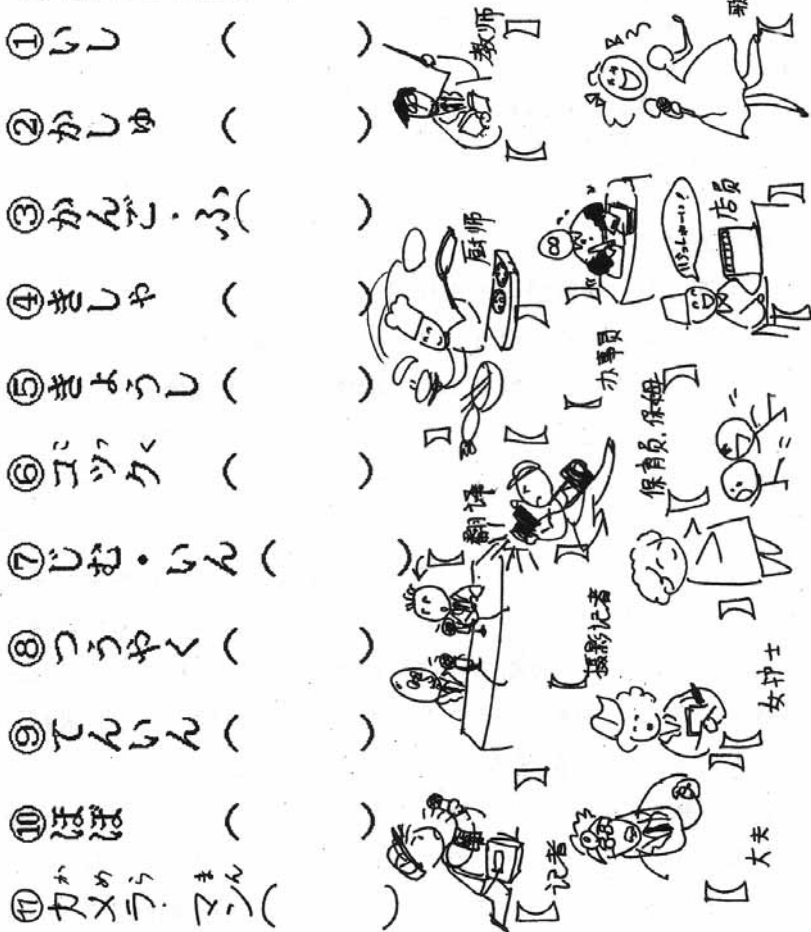 ①いし ( )
②かしゅ ( )
③かんご・ふ( )
④きしゃ ( )
⑤きょうし ( )
⑥コック ( )
こっく
⑦じむ・いん ( )
⑧つうやく ( )
⑨てんいん ( )
⑩ほぼ ( )
かめら まん
⑪カメラ・マン( )
【教师】
【歌
【厨师】
【办事员】
いらっしゃい!
店员】
【翻译】
【保育员.保姆】
【摄影记者】
【女护士】
【记者】
【大夫】